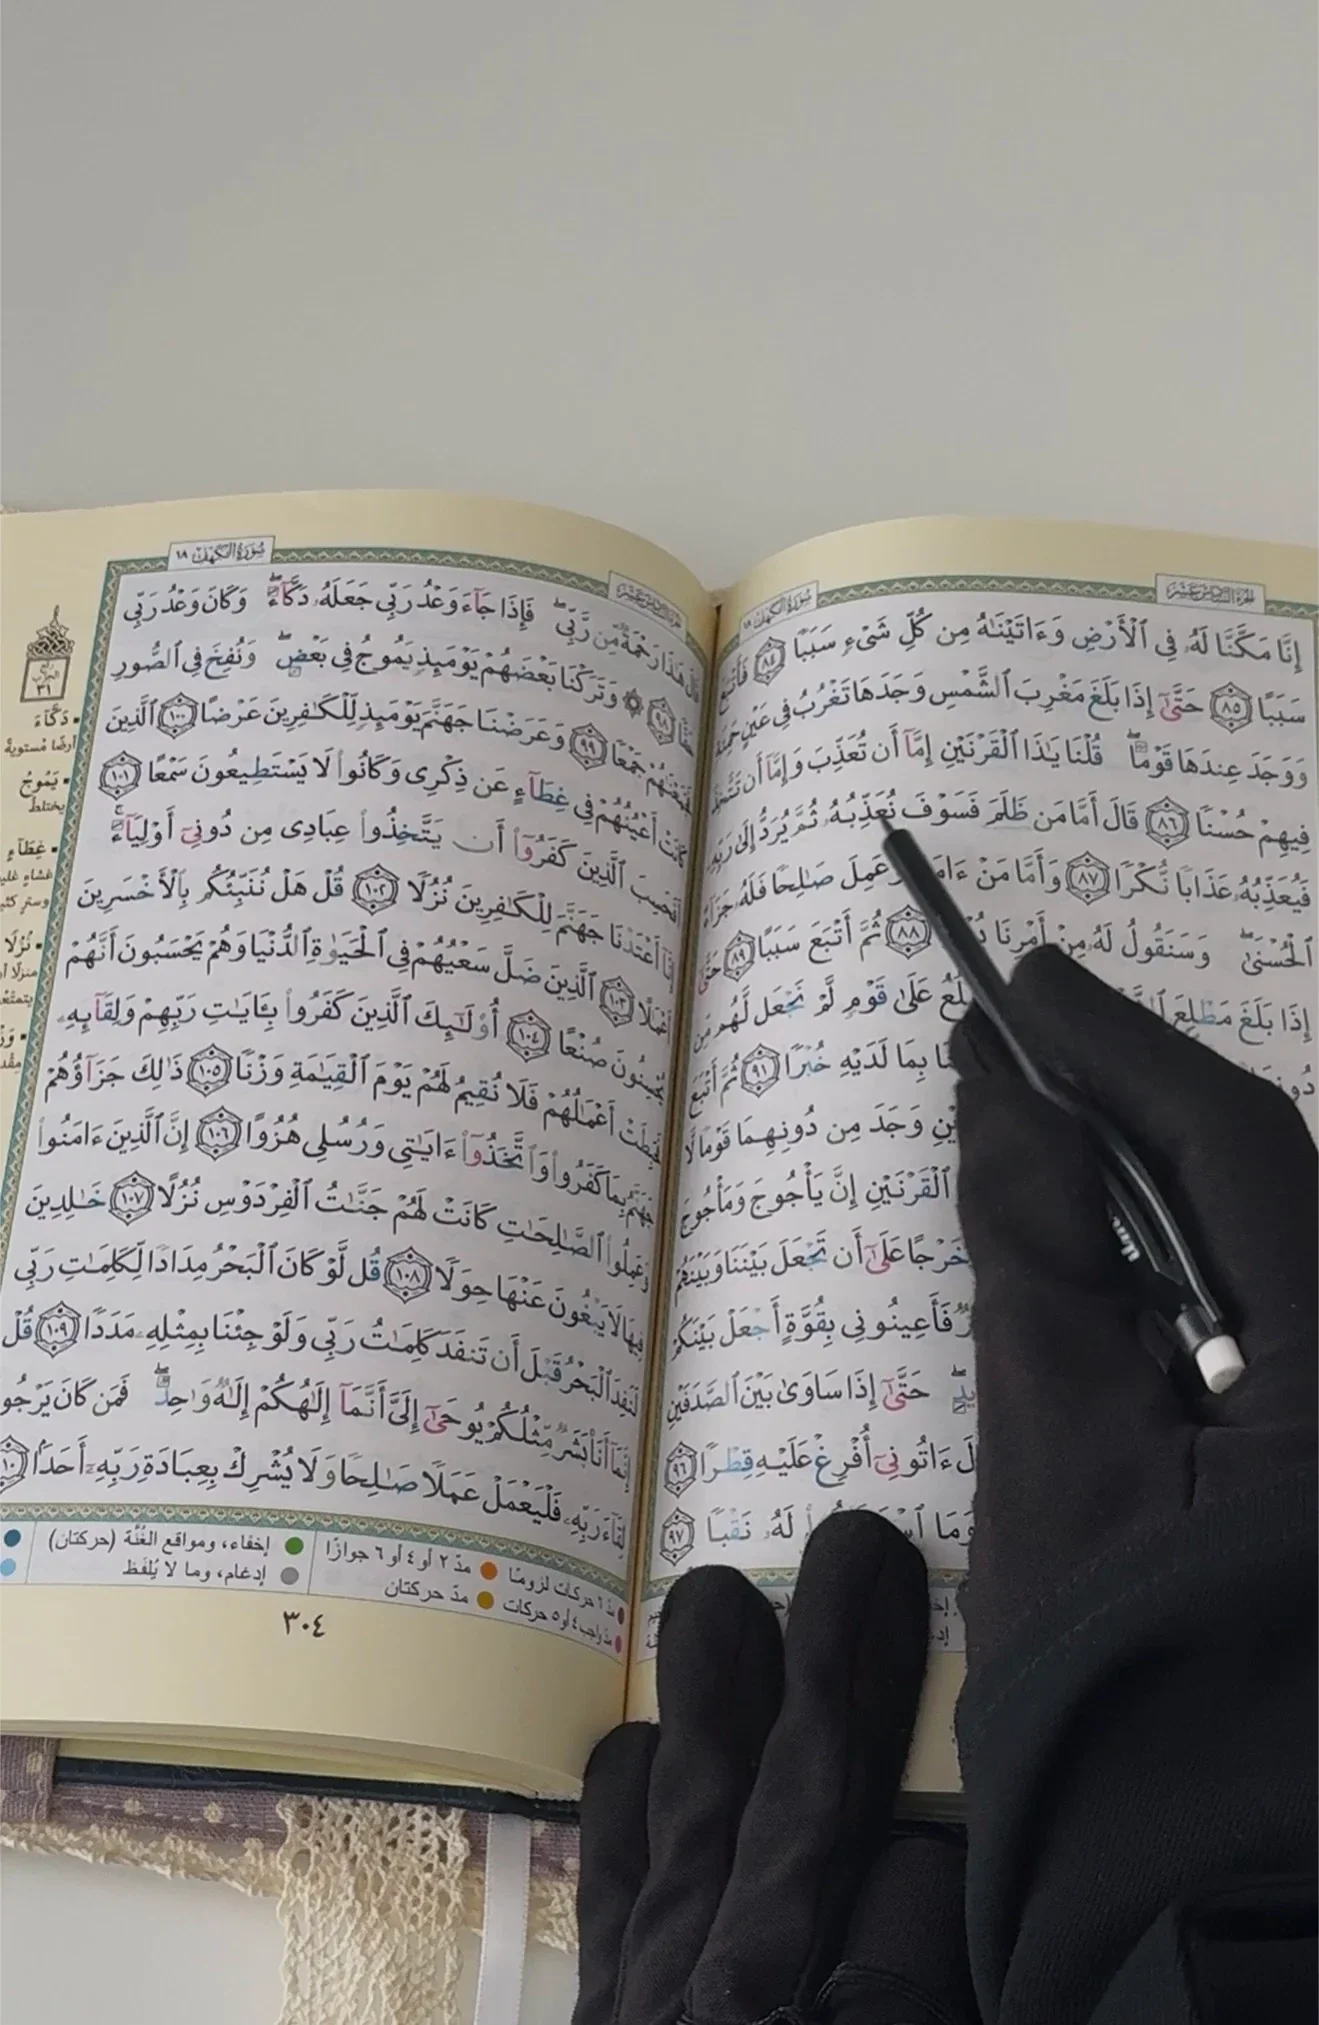 الجزء السادس عشر
سورة الكهف ١٨
إِنَّا مَكَّنَّا لَهُۥ فِي ٱلْأَرْضِ وَءَاتَيْنَٰهُ مِن كُلِّ شَيْءٍ سَبَبًا ٨٤ فَأَتْبَعَ
سَبَبًا ٨٥ حَتَّىٰٓ إِذَا بَلَغَ مَغْرِبَ ٱلشَّمْسِ وَجَدَهَا تَغْرُبُ فِي عَيْنٍ حَمِئَةٍ
وَوَجَدَ عِندَهَا قَوْمًا ۖ قُلْنَا يَٰذَا ٱلْقَرْنَيْنِ إِمَّآ أَن تُعَذِّبَ وَإِمَّآ أَن تَتَّخِذَ
فِيهِمْ حُسْنًا ٨٦ قَالَ أَمَّا مَن ظَلَمَ فَسَوْفَ نُعَذِّبُهُۥ ثُمَّ يُرَدُّ إِلَىٰ رَبِّهِۦ
فَيُعَذِّبُهُۥ عَذَابًا نُّكْرًا ٨٧ وَأَمَّا مَنْ ءَامَنَ وَعَمِلَ صَٰلِحًا فَلَهُۥ جَزَآءً
ٱلْحُسْنَىٰ ۖ وَسَنَقُولُ لَهُۥ مِنْ أَمْرِنَا ٨٨ ثُمَّ أَتْبَعَ سَبَبًا ٨٩ حَتَّىٰٓ
إِذَا بَلَغَ مَطْلِعَ عَلَىٰ قَوْمٍ لَّمْ نَجْعَل لَّهُم مِّن
بِمَا لَدَيْهِ خُبْرًا ٩١ ثُمَّ أَتْبَعَ
وَجَدَ مِن دُونِهِمَا قَوْمًا لَّا
ٱلْقَرْنَيْنِ إِنَّ يَأْجُوجَ وَمَأْجُوجَ
خَرْجًا عَلَىٰٓ أَن تَجْعَلَ بَيْنَنَا وَبَيْنَهُمْ
فَأَعِينُونِي بِقُوَّةٍ أَجْعَلْ بَيْنَكُمْ
حَتَّىٰٓ إِذَا سَاوَىٰ بَيْنَ ٱلصَّدَفَيْنِ
ءَاتُونِيٓ أُفْرِغْ عَلَيْهِ قِطْرًا ٩٦
وَمَا لَهُۥ نَقْبًا ٩٧
الجزء السادس عشر
سورة الكهف ١٨
قَالَ هَٰذَا رَحْمَةٌ مِّن رَّبِّي ۖ فَإِذَا جَآءَ وَعْدُ رَبِّي جَعَلَهُۥ دَكَّآءَ ۖ وَكَانَ وَعْدُ رَبِّي
حَقًّا ٩٨ ۞ وَتَرَكْنَا بَعْضَهُمْ يَوْمَئِذٍ يَمُوجُ فِي بَعْضٍ ۖ وَنُفِخَ فِي ٱلصُّورِ
فَجَمَعْنَٰهُمْ جَمْعًا ٩٩ وَعَرَضْنَا جَهَنَّمَ يَوْمَئِذٍ لِّلْكَٰفِرِينَ عَرْضًا ١٠٠ ٱلَّذِينَ
كَانَتْ أَعْيُنُهُمْ فِي غِطَآءٍ عَن ذِكْرِي وَكَانُوا۟ لَا يَسْتَطِيعُونَ سَمْعًا ١٠١
أَفَحَسِبَ ٱلَّذِينَ كَفَرُوٓا۟ أَن يَتَّخِذُوا۟ عِبَادِي مِن دُونِيٓ أَوْلِيَآءَ ۚ
إِنَّآ أَعْتَدْنَا جَهَنَّمَ لِلْكَٰفِرِينَ نُزُلًا ١٠٢ قُلْ هَلْ نُنَبِّئُكُم بِٱلْأَخْسَرِينَ
أَعْمَٰلًا ١٠٣ ٱلَّذِينَ ضَلَّ سَعْيُهُمْ فِي ٱلْحَيَوٰةِ ٱلدُّنْيَا وَهُمْ يَحْسَبُونَ أَنَّهُمْ
يُحْسِنُونَ صُنْعًا ١٠٤ أُو۟لَٰٓئِكَ ٱلَّذِينَ كَفَرُوا۟ بِـَٔايَٰتِ رَبِّهِمْ وَلِقَآئِهِۦ
فَحَبِطَتْ أَعْمَٰلُهُمْ فَلَا نُقِيمُ لَهُمْ يَوْمَ ٱلْقِيَٰمَةِ وَزْنًا ١٠٥ ذَٰلِكَ جَزَآؤُهُمْ
جَهَنَّمُ بِمَا كَفَرُوا۟ وَٱتَّخَذُوٓا۟ ءَايَٰتِي وَرُسُلِي هُزُوًا ١٠٦ إِنَّ ٱلَّذِينَ ءَامَنُوا۟
وَعَمِلُوا۟ ٱلصَّٰلِحَٰتِ كَانَتْ لَهُمْ جَنَّٰتُ ٱلْفِرْدَوْسِ نُزُلًا ١٠٧ خَٰلِدِينَ
فِيهَا لَا يَبْغُونَ عَنْهَا حِوَلًا ١٠٨ قُل لَّوْ كَانَ ٱلْبَحْرُ مِدَادًا لِّكَلِمَٰتِ رَبِّي
لَنَفِدَ ٱلْبَحْرُ قَبْلَ أَن تَنفَدَ كَلِمَٰتُ رَبِّي وَلَوْ جِئْنَا بِمِثْلِهِۦ مَدَدًا ١٠٩ قُلْ
إِنَّمَآ أَنَا۠ بَشَرٌ مِّثْلُكُمْ يُوحَىٰٓ إِلَيَّ أَنَّمَآ إِلَٰهُكُمْ إِلَٰهٌ وَٰحِدٌ ۖ فَمَن كَانَ يَرْجُوا۟
لِقَآءَ رَبِّهِۦ فَلْيَعْمَلْ عَمَلًا صَٰلِحًا وَلَا يُشْرِكْ بِعِبَادَةِ رَبِّهِۦٓ أَحَدًۢا
مدّ ٦ حركات لزومًا مدّ ٢ أو ٤ أو ٦ جوازًا
مدّ واجب ٤ أو ٥ حركات مدّ حركتان
إخفاء، ومواقع الغُنَّة (حركتان)
إدغام، وما لا يُلفَظ
٣٠٤
٣١
دَكَّآءَ
أرضًا مُستوية
يَمُوجُ
يختلط
غِطَآءٍ
نُزُلًا